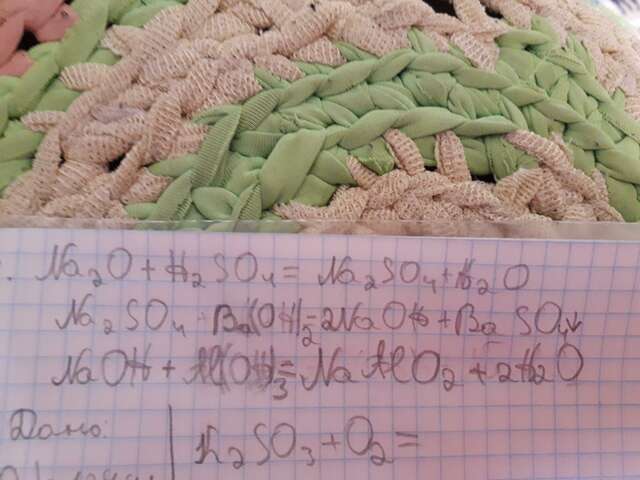 . Na₂O + H₂SO₄ = Na₂SO₄ + H₂O
Na₂SO₄ + Ba(OH)₂ = 2NaOH + BaSO₄↓
NaOH + Al(OH)₃ = NaAlO₂ + 2H₂O
Дано:
K₂SO₃ + O₂ =